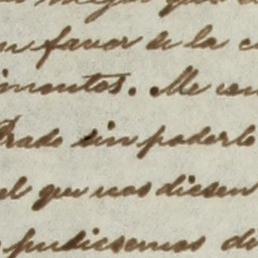 en favor de la
imentos. Me
Prado sin poderlo
el que nos diesen
pudiesemos